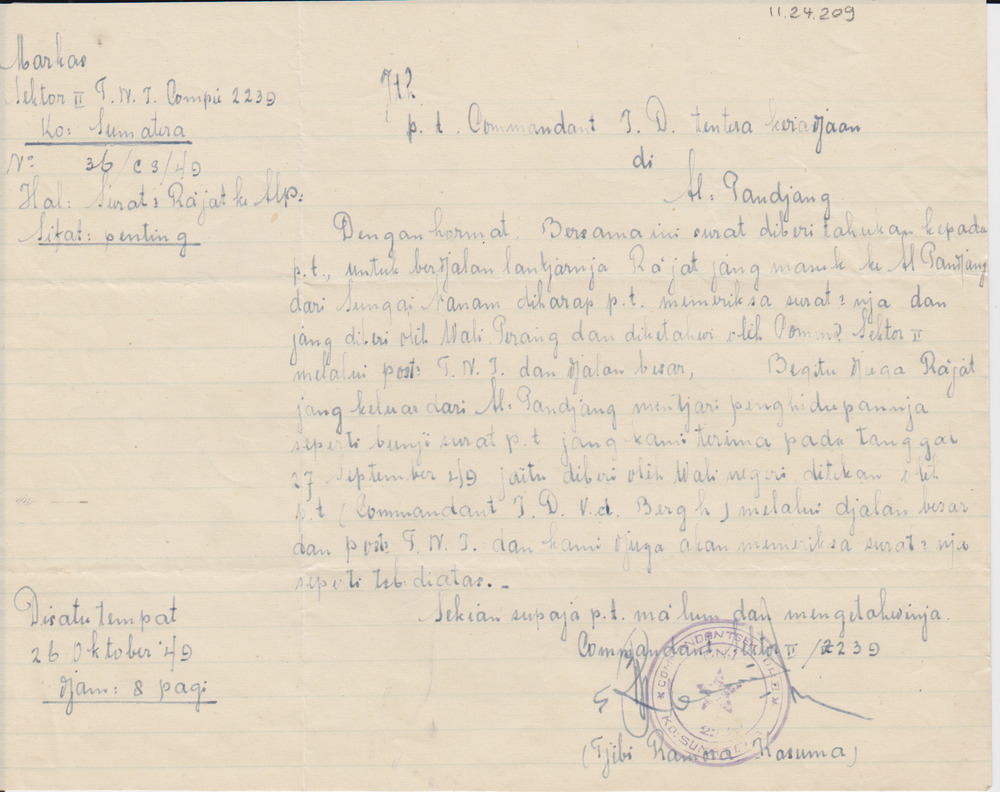 11.24.209
Markas
Sektor II T.N.I. Compie 2239
Ko: Sumatera
No 36/C3/49
Hal: Surat² Ra'jat ke Alp:
Sifat: penting
Jth
p.t. Commandant I.D. tentera keradjaan
di
Al: Pandjang
Dengan hormat. Bersama ini surat diberi tahukan kepada
p.t., untuk berdjalan lantjarnja Ra'jat jang masuk ke Al Pandjang
dari Sungai Nanam diharap p.t. memeriksa surat²nja dan
jang diberi olih Wali Perang dan diketahwi olih Comm? Sektor II
melalui post² T.N.I. dan djalan besar, Begitu djuga Ra'jat
jang keluar dari Al: Pandjang mentjari penghidupannja
seperti bunji surat p.t. jang kami terima pada tanggal
27 September 49 jaitu diberi olih Wali negeri diteken olih
p.t (Commandant I.D. V.d. Bergh) melalui djalan besar
dan post² T.N.I. dan kami djuga akan memeriksa surat²nja
seperti tsb diatas._
Sekian supaja p.t. ma'lum dan mengetahwinja.
Disatu tempat
26 Oktober 49
djam: 8 pagi
Commandant Sektor II / 2239
COMMANDANT SEKTOR II
T.N.I.
KO: SUMATERA
(Tjibi Kasuma)